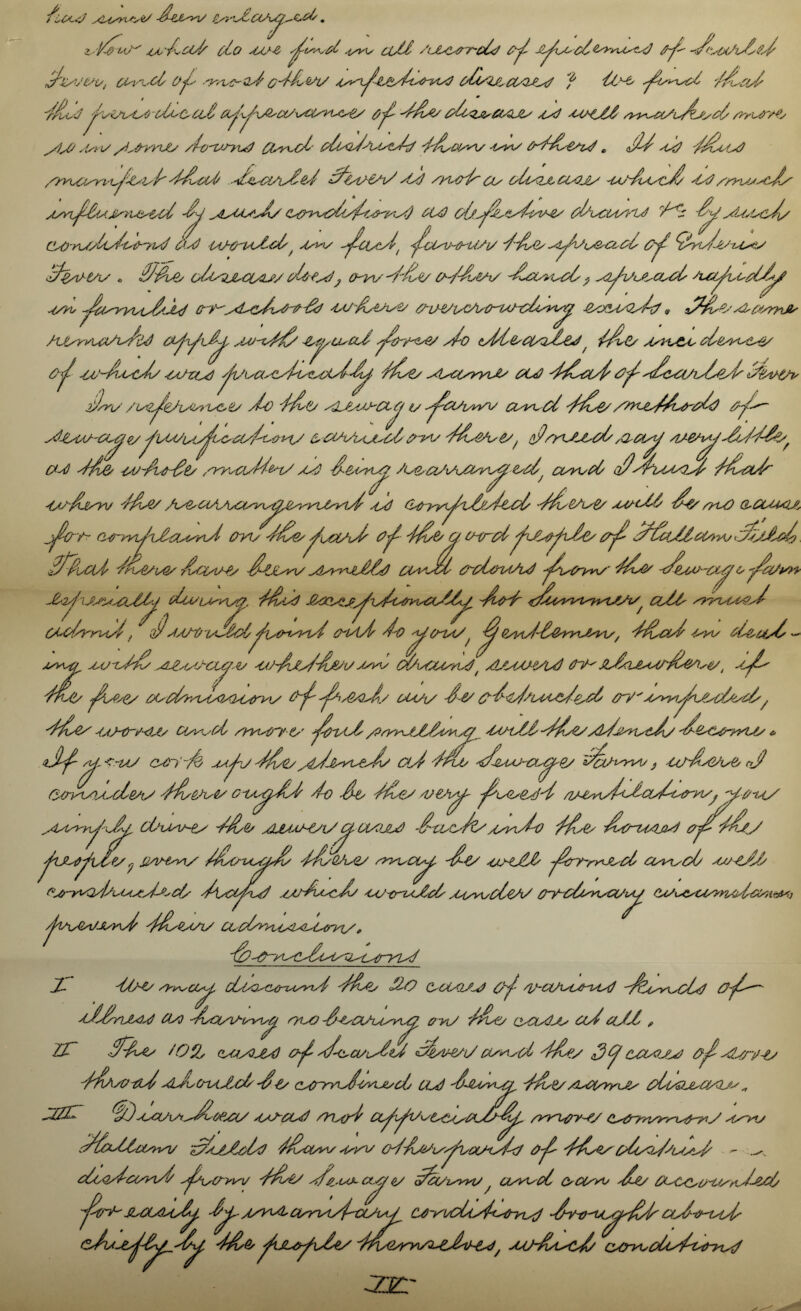 had rained been employed.
2 How what do we find in all records of epidemics of scarlet
fever, and of most other infectious disease? We find that
this periodical appearance of the disease is well marked more
so in some towns and districts than in others. It is thus
manifest that scarlet fever is not a disease which is much
influenced by such conditions as defective drains &c by such
conditions as would, in fact, favour the spread of Enteric
fever. The disease does, on the other hand, spread rapidly
in families or schools where overcrowding exists. The same
remarks apply with equal force to Measles, the incidence
of which was practically the same as that of scarlet fever
In reference to the sewage farm and the methods of
sewage purification carried on there, I must say very little,
as the whole matter is being rearranged, and I trust that
when the rearrangement is completed there will be no cause
for complaint on the part of the good people of Hallam Fields.
That there have been smells and odours from the sewage farm
especially during this exceptionally hot summer, all must
admit, I would point out to you, Gentlemen, that in deal-
ing with sewage whether in drains, sewers or elsewhere, if
the free admission of fresh air be obstructed or impeded,
the worse and more foul smelling will the stench become.
If you cork up the stench at the sewage Farm, where I
consider there ought to be the very freest ventilation, you
simply drive the sewer gases back into the houses of the
people, even though there may be well formed and well
constructed traps which would under ordinary circumstances
prevent their admission.
Conclusions
I We may discount the 20 cases of various kinds of
illness as having no bearing on the cases at all.
II The 102 cases of scarlet fever and the 39 cases of sore
throat should be considered as being the same disease.
III Diarrhoea was not appreciably more common in
Hallam Fields than in other parts of the district -
distant from the sewage Farm, and can be accounted
for easily by insanitary conditions brought about
chiefly by the people themselves, which conditions
IV